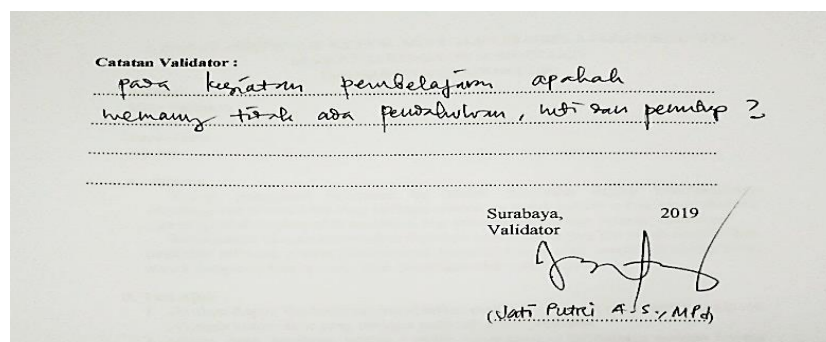 Catatan Validator :
pada kegiatan pembelajaran apakah
memang tidak ada pendahuluan, inti dan penutup ?
Surabaya, 2019
Validator
(Jati Putri A.S., MPd)